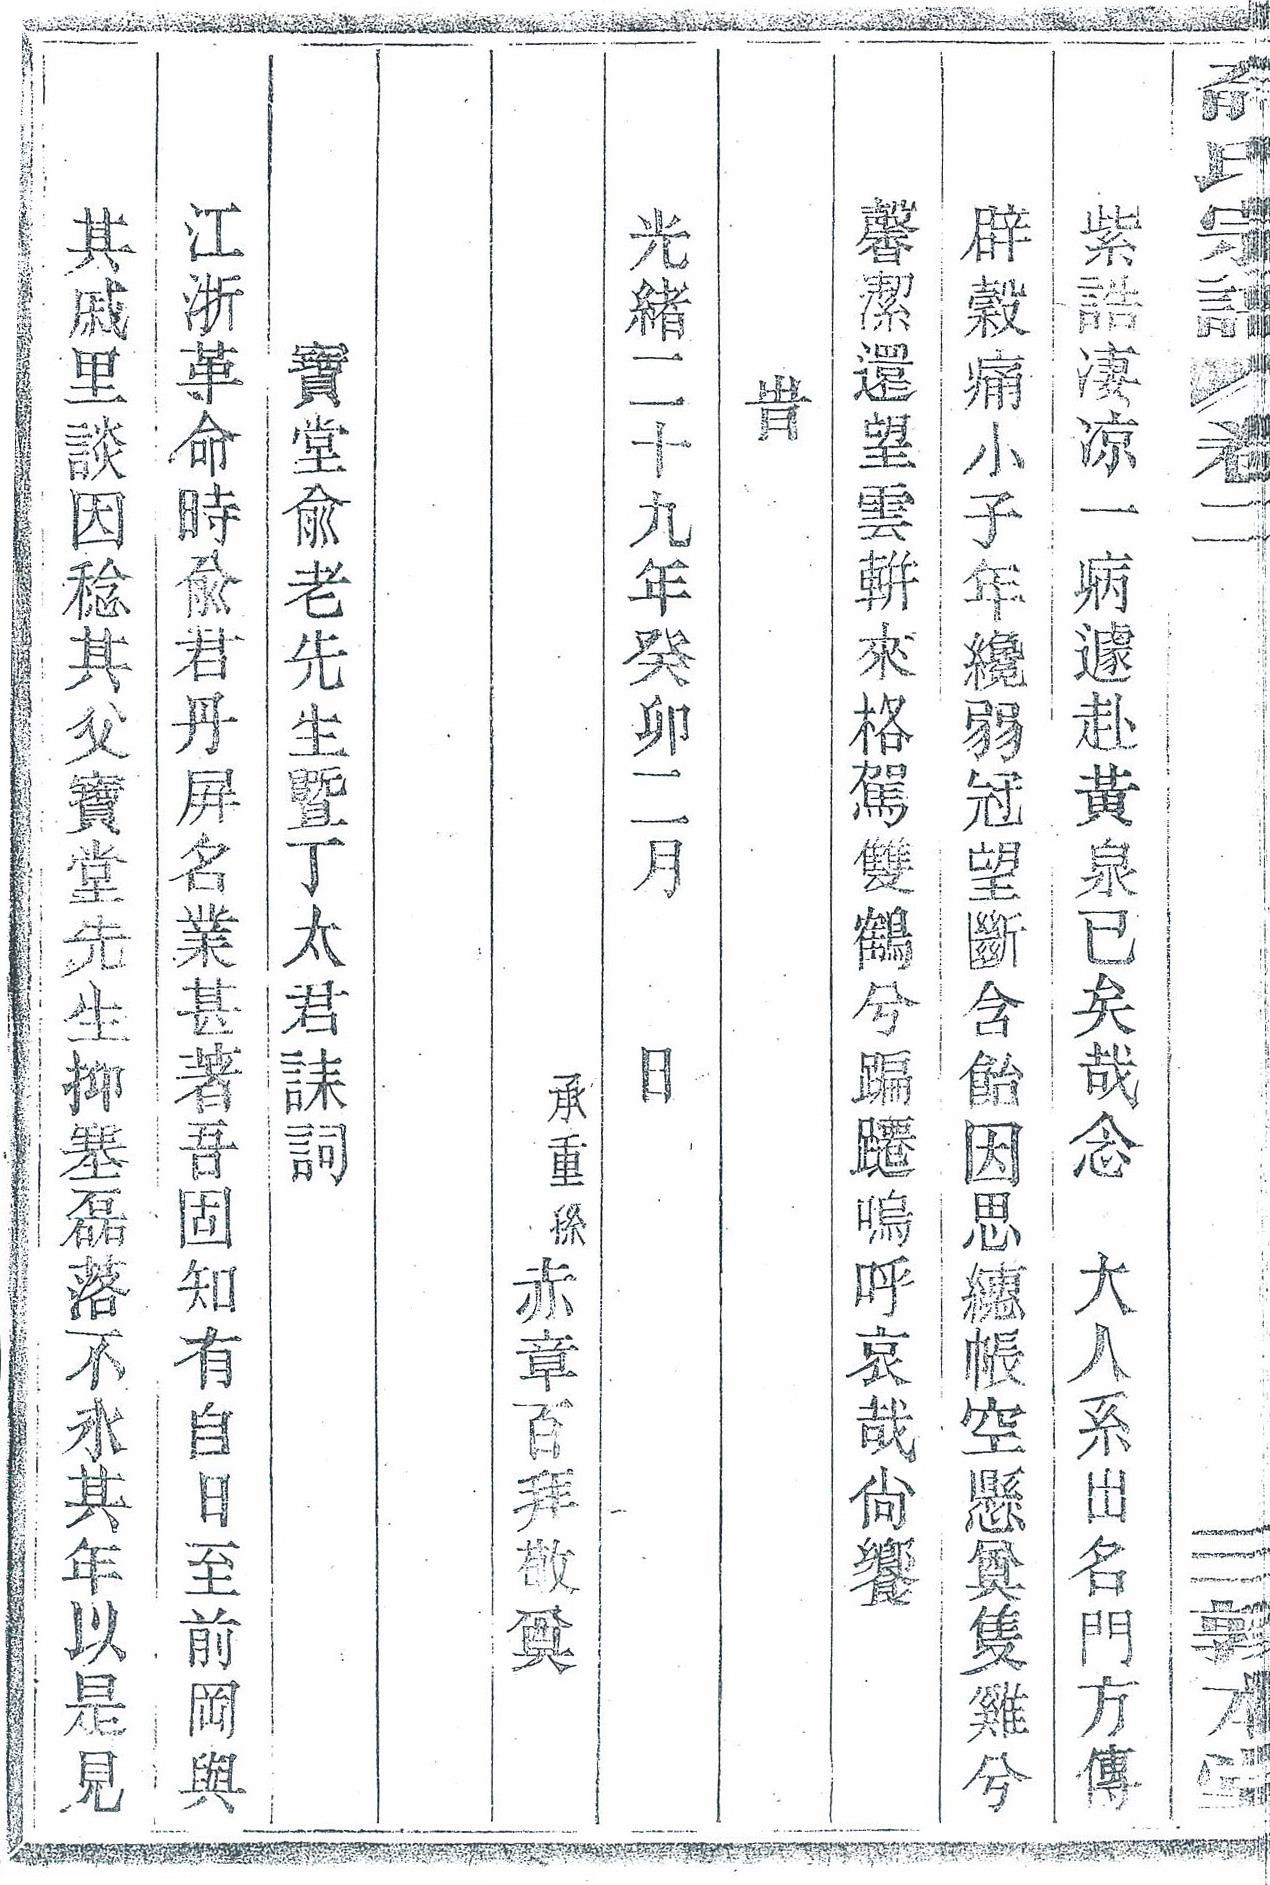 俞氏宗譜 卷二 三 敦本堂
紫誥淒凉一病遽赴黃泉已矣哉念 大人系出名門方傳
辟穀痛小子年纔弱冠望斷含飴因思繐帳空懸奠隻雞兮
馨潔還望雲軿來格駕雙鶴兮蹁躚嗚呼哀哉尙饗
旹
光緒二十九年癸卯二月 日
承重孫赤章百拜敬奠
寶堂俞老先生暨丁太君誄詞
江浙革命時俞君丹屏名業甚著吾固知有自日至前岡與
其戚里談因稔其父寶堂先生抑塞磊落不永其年以是見